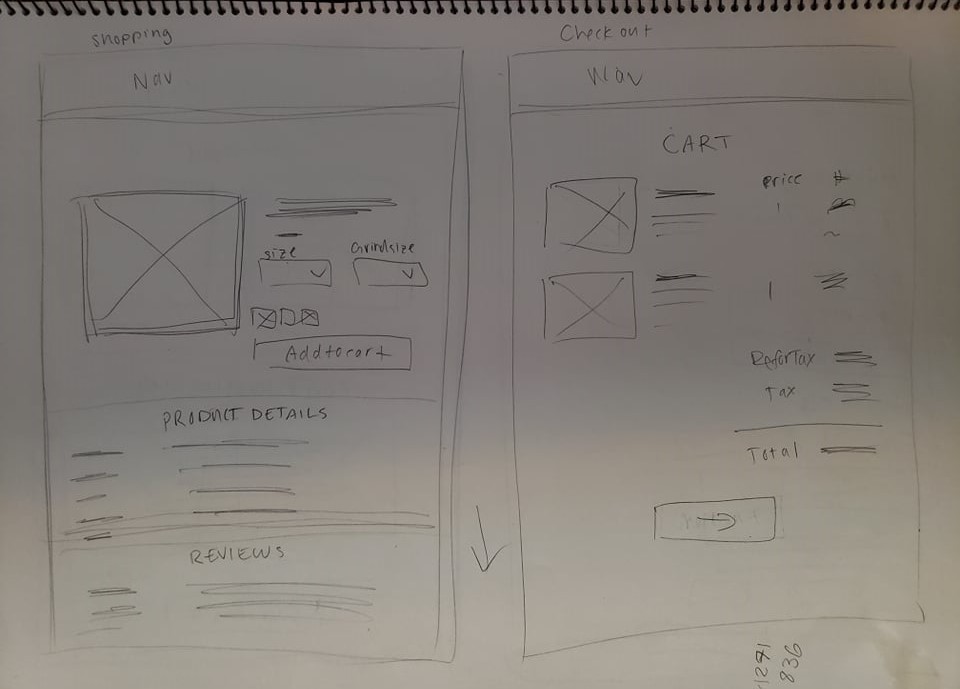 shopping
Nav
size
Grindsize
Add to cart
PRODUCT DETAILS
REVIEWS
Check out
Nav
CART
price
#
Tax
Total
1271
836